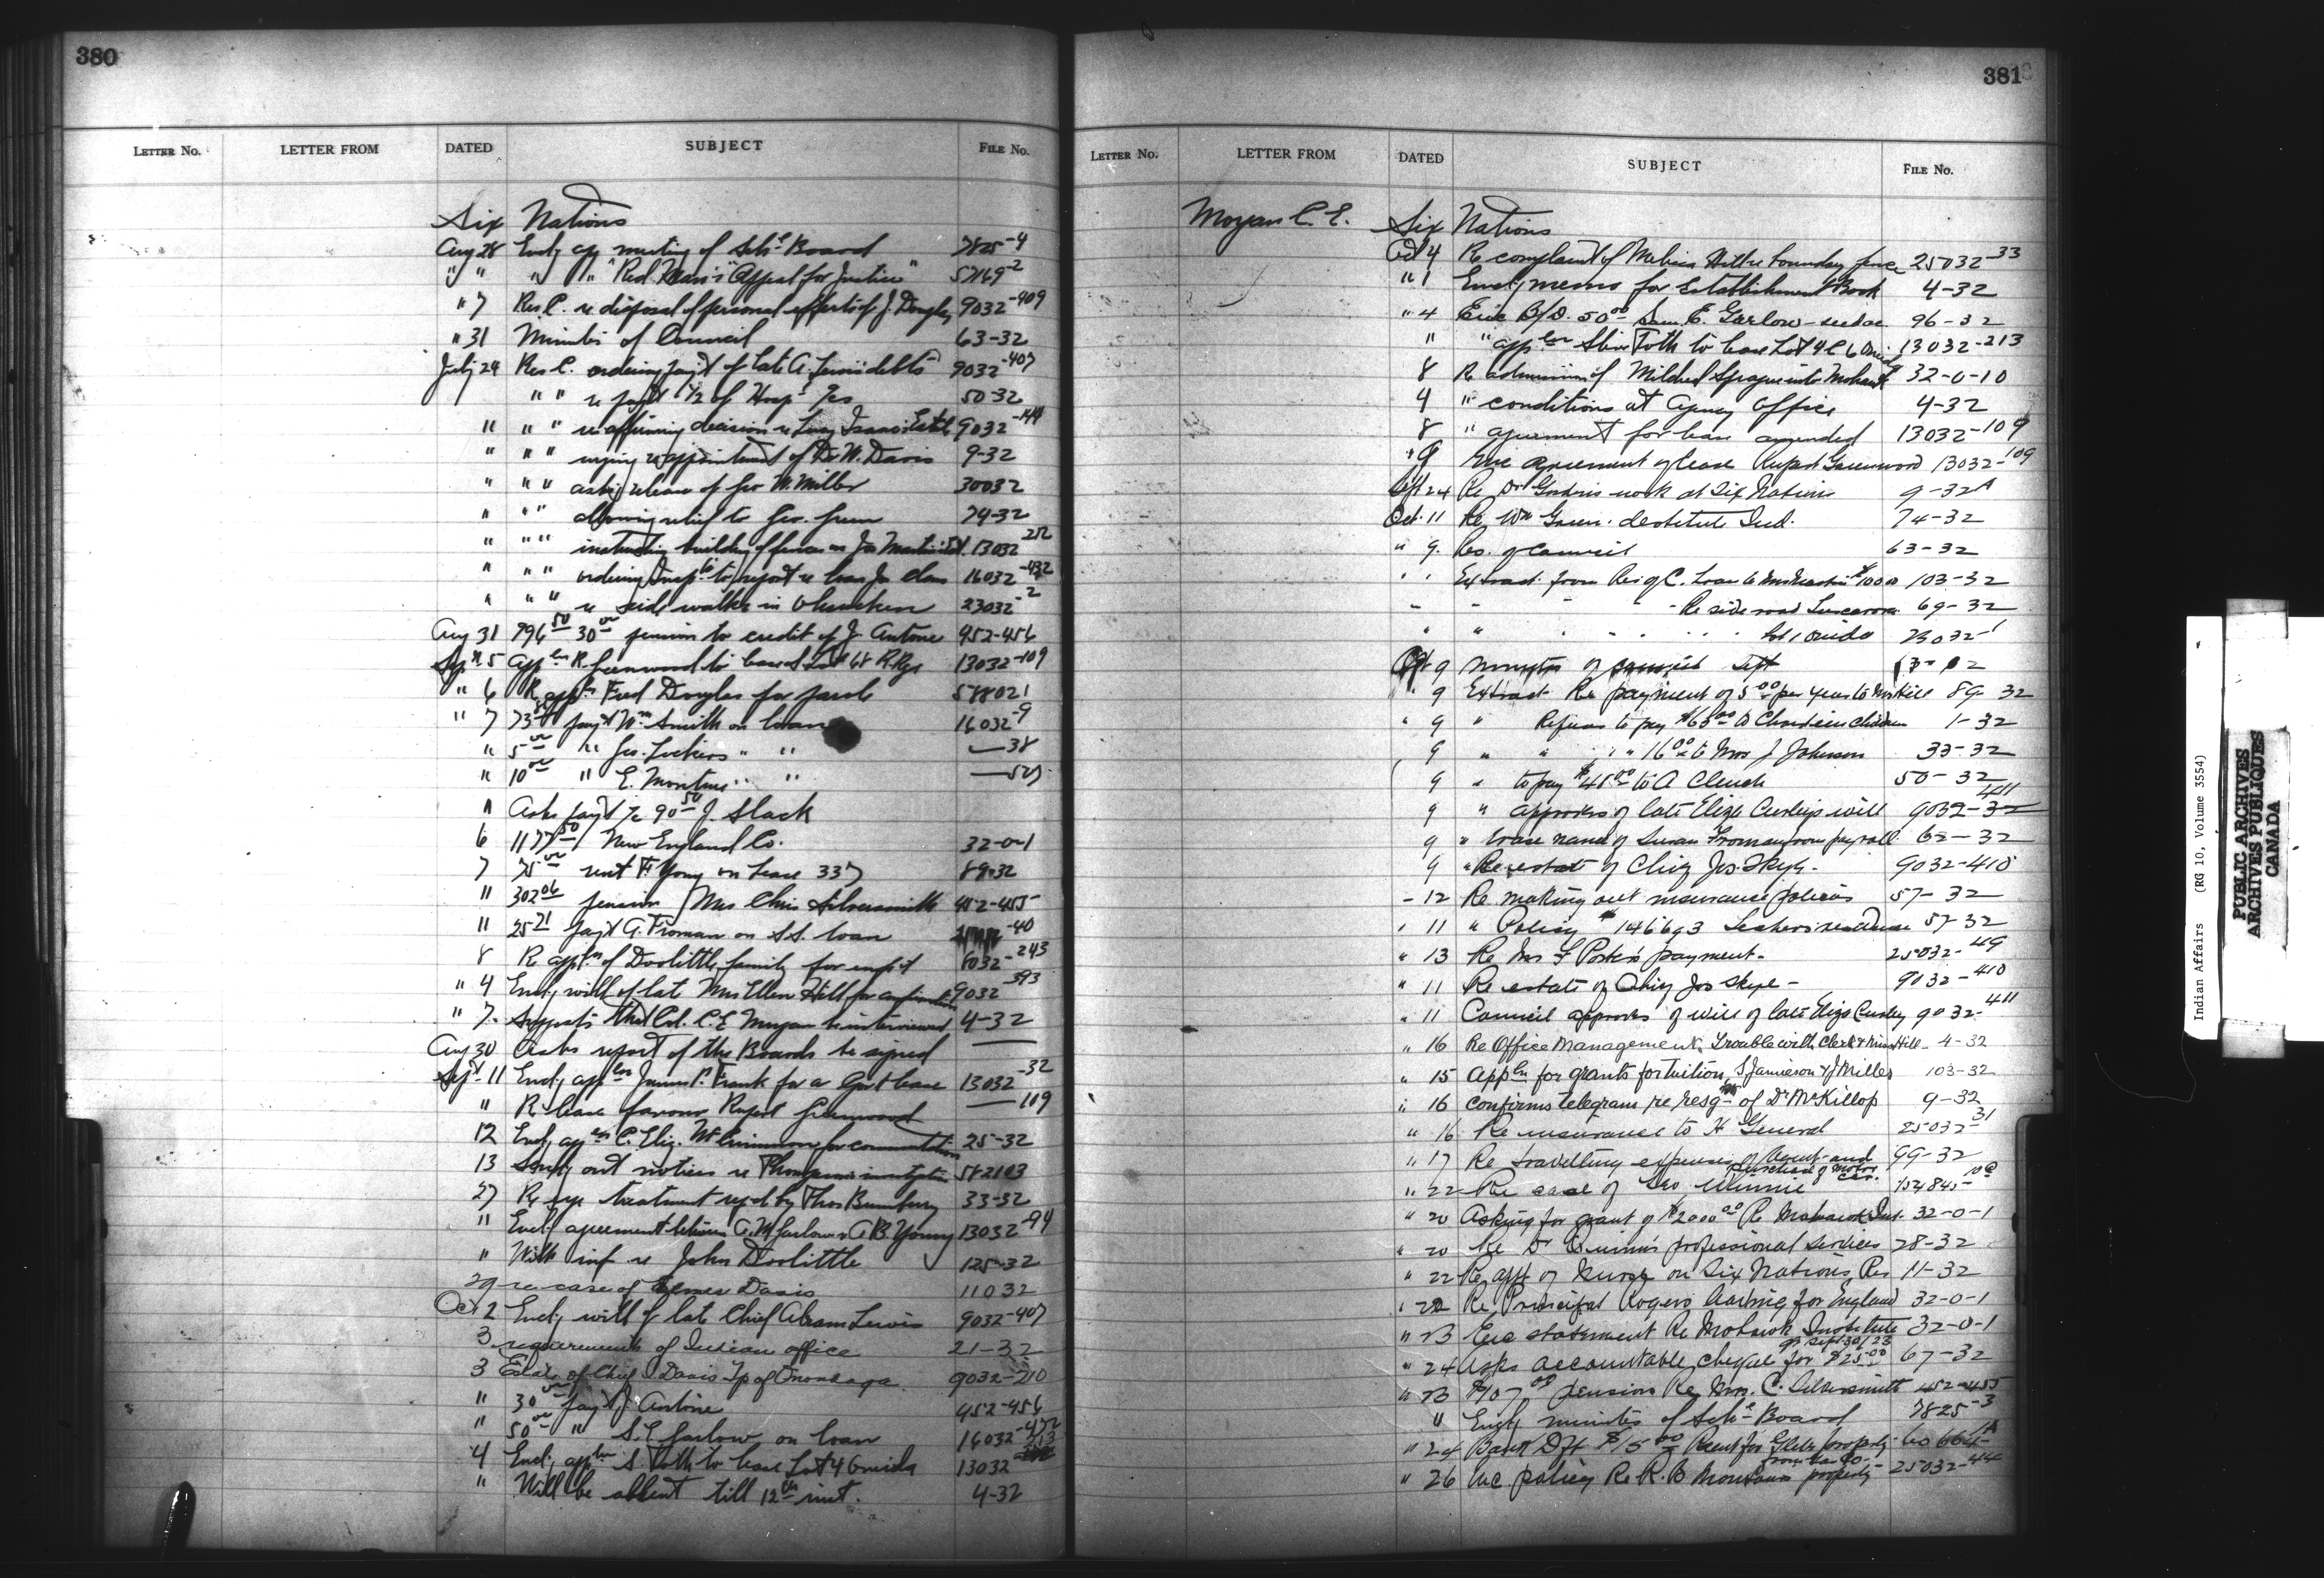 380
LETTER No. LETTER FROM DATED SUBJECT FILE No.
Six Nations
Aug 28 Encl'g meeting of Sch'l Board 7825-4
" " " " "Red Man's Appeal for Justice" 57169-2
" 7 Res C. re disposal of personal effects of J. Douglas 9032-409
" 31 Minutes of Council 63-32
July 24 Res C. ordering payt of late A. Lewis' debts 9032-407
" " re payt 1/2 of Hosp'l 50-32
" " " re affirming decision re Lucy Isaacs Estate 9032-144
" " " urging re appointment of Dr W. Davis 9-32
" " " asking release of Geo W. Miller 30032
" " " allowing relief to Geo. Green 74-32
" " " instructing building of fences on Jos Martin's 13032-212
" " " ordering Insp'r to report re loan Jos 16032-432
" " " re side walks in Ohsweken 23032-2
Aug 31 30 00 pension to credit of J. Antone 452-456
Sept 5 appln R. Greenwood to lease Lot 68 R. Rge 13032-109
" 6 R appln Fred Douglas for parole 588021
" 7 payt Wm Smith on loan 16032-9
" 5 00 " Jos. Lickers " " —38
" 10 00 " E. Monture " "
" Asks payt 90 50 J. Slack
6 1177 50 New England Co. 32-0-1
7 75 00 rent F. Young on Lease 337 89-32
" 302 06 pension Mrs Chris Silversmith 452-455
" 25 21 payt G. Froman on S.S. loan -40
8 R appln of Doolittle family for 6032-243
" 4 Encl'g will of late Mrs Ellen Hill for 9032-393
" 7. Suggests that Col. C.E. Morgan be interviewed 4-32
Aug 30 Asks report of the Boards be signed —
Sept 11 Encl'g appln James P. Frank for a Govt lease 13032-32
" R lease favour Rupert Greenwood —109
12 Encl'g appln C. Eliz. for commutation 25-32
13 Sending out notices re Thompson's investigation 582103
27 Re eye treatment req'd by Thos 33-32
" Encl'g agreement between A. M Garlow & A B. Young 13032-94
" With inf re John Doolittle 125-32
29 re case of Elmer Davis 11032
Oct 2 Encl'g will of late Chief Abram Lewis 9032-407
3 requirements of Indian office 21-32
3 Estate of Chief Davis Tp of Onondaga 9032-210
" 30 00 payt J. Antone 452-456
" 50 00 " S.E. Garlow on loan 16032-472
4 Encl'g appln S Toth to lease Lot 4 6 Oneida 13032-213
" Will be absent till 12th inst. 4-32
381
LETTER No. LETTER FROM DATED SUBJECT FILE No.
Morgan C. E. Six Nations
Oct 4 Re complaint of Melissa Hill re boundary fence 25032-33
" 1 Encl'g memo for Establishment Book 4-32
" 4 Enc B/D. 50 00 Sam. E. Garlow 96-32
" " appln Steve Toth to lease Lot 4 C 6 Oneida 13032-213
8 Re admission of Mildred Sprague into Mohawk 32-0-10
4 " conditions at Agency Office 4-32
8 " agreement for lease amended 13032-109
" 9 Enc agreement of lease Rupert Greenwood 13032-109
Sept 24 Re Dr work at Six Nations 9-32A
Oct. 11 Re Wm Green. destitute Ind. 74-32
" 9. Res. of Council 63-32
" " Extract from Res of C. Loan to Mrs 103-32
" " " " Re side road Tuscarora 69-32
" " " " Lot 1 Oneida 23032-1
Oct 9 Minutes of Council Sept
" 9 Extract Re payment of 5 00 per year to Mrs Hill 89-32
" 9 " Refuses to pay $63 00 to children 1-32
9 " " " " 16 00 to Mrs J Johnson 33-32
9 " to pay $48 00 to A Clench 50-32
9 " approves of late Eliza Curley's will 9032-411
9 " erase name of Susan Froman from pay roll 62-32
9 " Re estate of Chief Jos. Skye. 9032-410
" 12 Re making out insurance policies 57-32
" 11 " Policy # 146693 57-32
" 13 Re Mrs F Porter's payment- 25032-49
" 11 Re estate of Chief Jos Skye - 9032-410
" 11 Council approves of will of late Eliza Curley 9032-411
" 16 Re Office Management. Trouble with Clerk & Miss Hill 4-32
" 15 Appln for grants for tuition, S Jamieson & J Miller 103-32
" 16 confirms telegram re resgtn of Dr McKillop 9-32
" 16 Re insurance to H General 25032-31
" 17 Re travelling expenses of Agent and purchase of motor car. 99-32
" 22 Re case of Geo Winnie
" 20 Asking for grant of $2000 00 Re Mohawk Inst. 32-0-1
" 20 Re Dr Quinn's professional services 28-32
" 22 Re appt of Nurse on Six Nations Res 11-32
" 22 Re Principal Rogers leaving for England 32-0-1
" 23 Enc statement Re Mohawk Institute qr Sept 30/23 32-0-1
" 24 Asks accountable cheque for $25 00 67-32
" 23 $107 00 pension Re Mrs. C. Silversmith 452-455
" Encl'g minutes of Sch'l Board 7825-3
" 24 Bank Dft $15 00 Rent for Glebe property
" 26 Enc. policy Re R. B Monture's property 25032-44
Indian Affairs (RG 10, Volume 3554)
PUBLIC ARCHIVES
ARCHIVES PUBLIQUES
CANADA